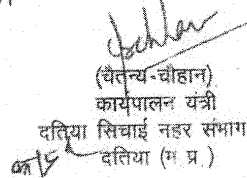 (चैतन्य-चौहान)
कार्यपालन यंत्री
दतिया सिचाई नहर संभाग
दतिया (म.प्र.)